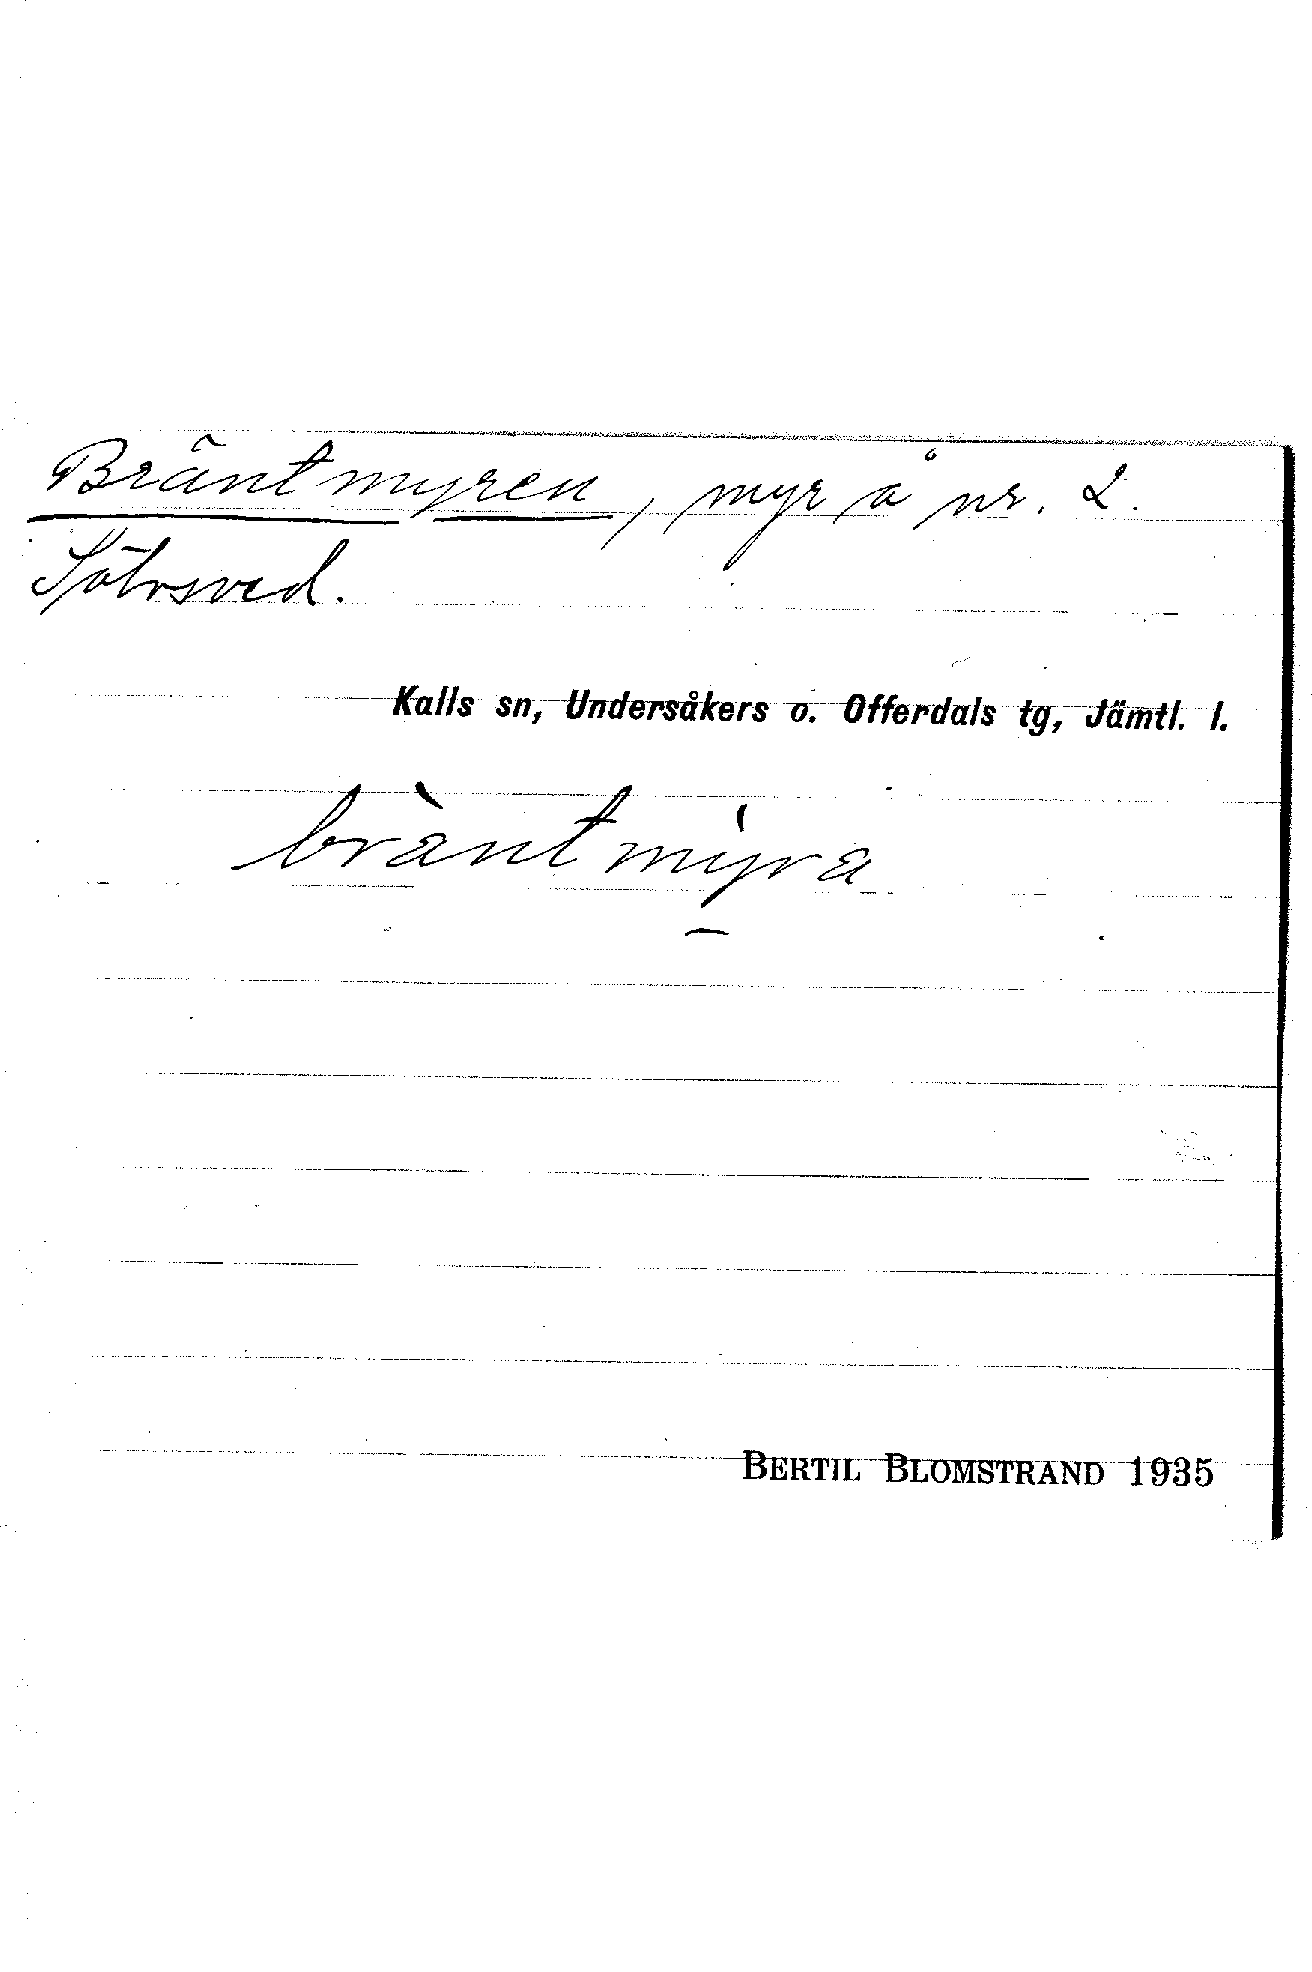 Bräntmyren, myr å nr. 2.
Sötvsved.
Kalls sn, Undersåkers o. Offerdals tg, Jämtl. l.
bräntmyra
BERTIL BLOMSTRAND 1935